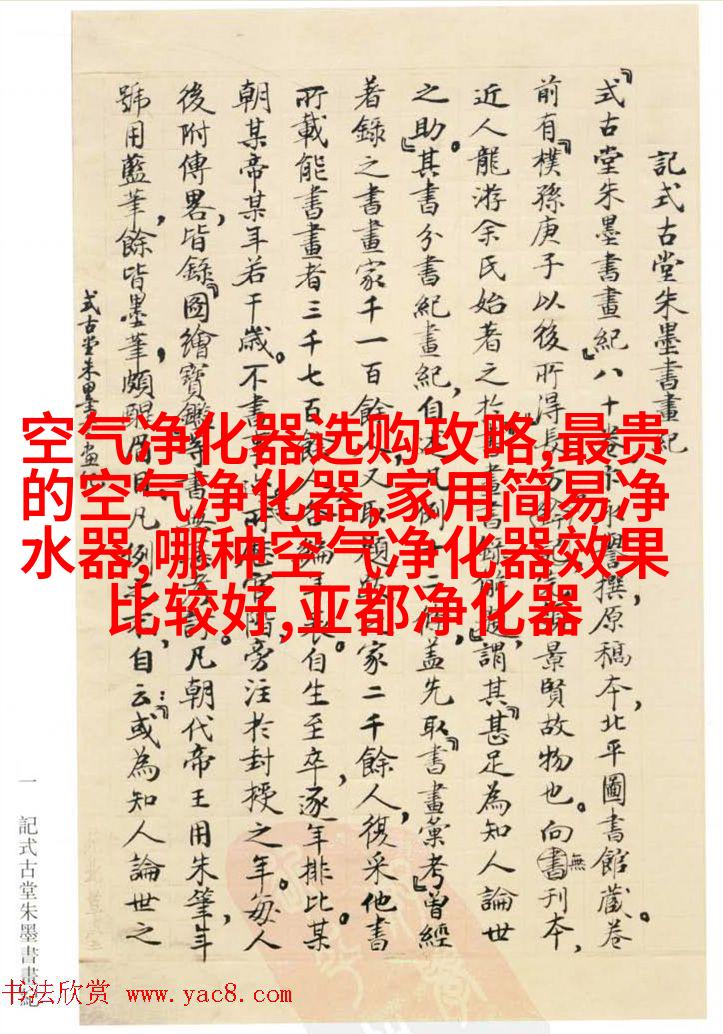 記式古堂朱墨書畫紀
『式古堂朱墨書畫紀』八十卷卞永譽撰原稿本，北平圖書館藏。卷
前有『樸孫庚子以後所得長方
景賢故物也。向無書刊本，
近人龍游余氏始著之於
謂其『甚足為知人論世
之助』。其書分書紀畫紀，自
蓋先取『書畫彙考』曾經
著錄之書畫家千一百餘
家二千餘人，復采他書
所載能書畫者三千七百
自生至卒，逐年排比某
朝某帝某年若干歲。不書
旁注於封授之年。每人
後附傳畧，皆錄『圖繪寶鑑』等書
凡朝代帝王用朱筆，年
號用藍筆，餘皆墨筆，頗醒眉目。凡例
自云：或為知人論世之
式古堂朱墨書畫紀
一
記式古堂朱墨書畫紀
空气净化器选购攻略,最贵
的空气净化器,家用简易净
水器,哪种空气净化器效果
比较好,亚都净化器
书法欣赏 www.yac8.com